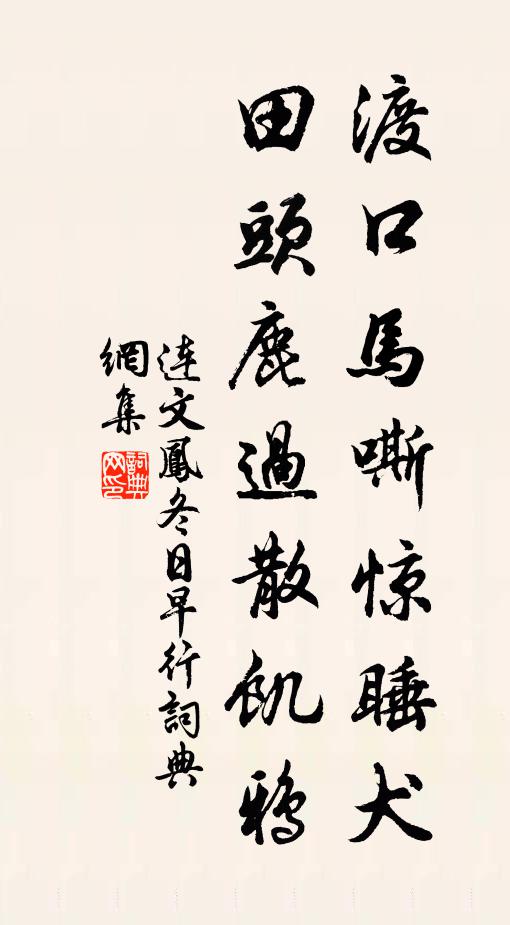 渡口馬嘶惊睡犬
田頭鹿過散飢鴉
連文鳳冬日早行詞典
網集
詞典
网印